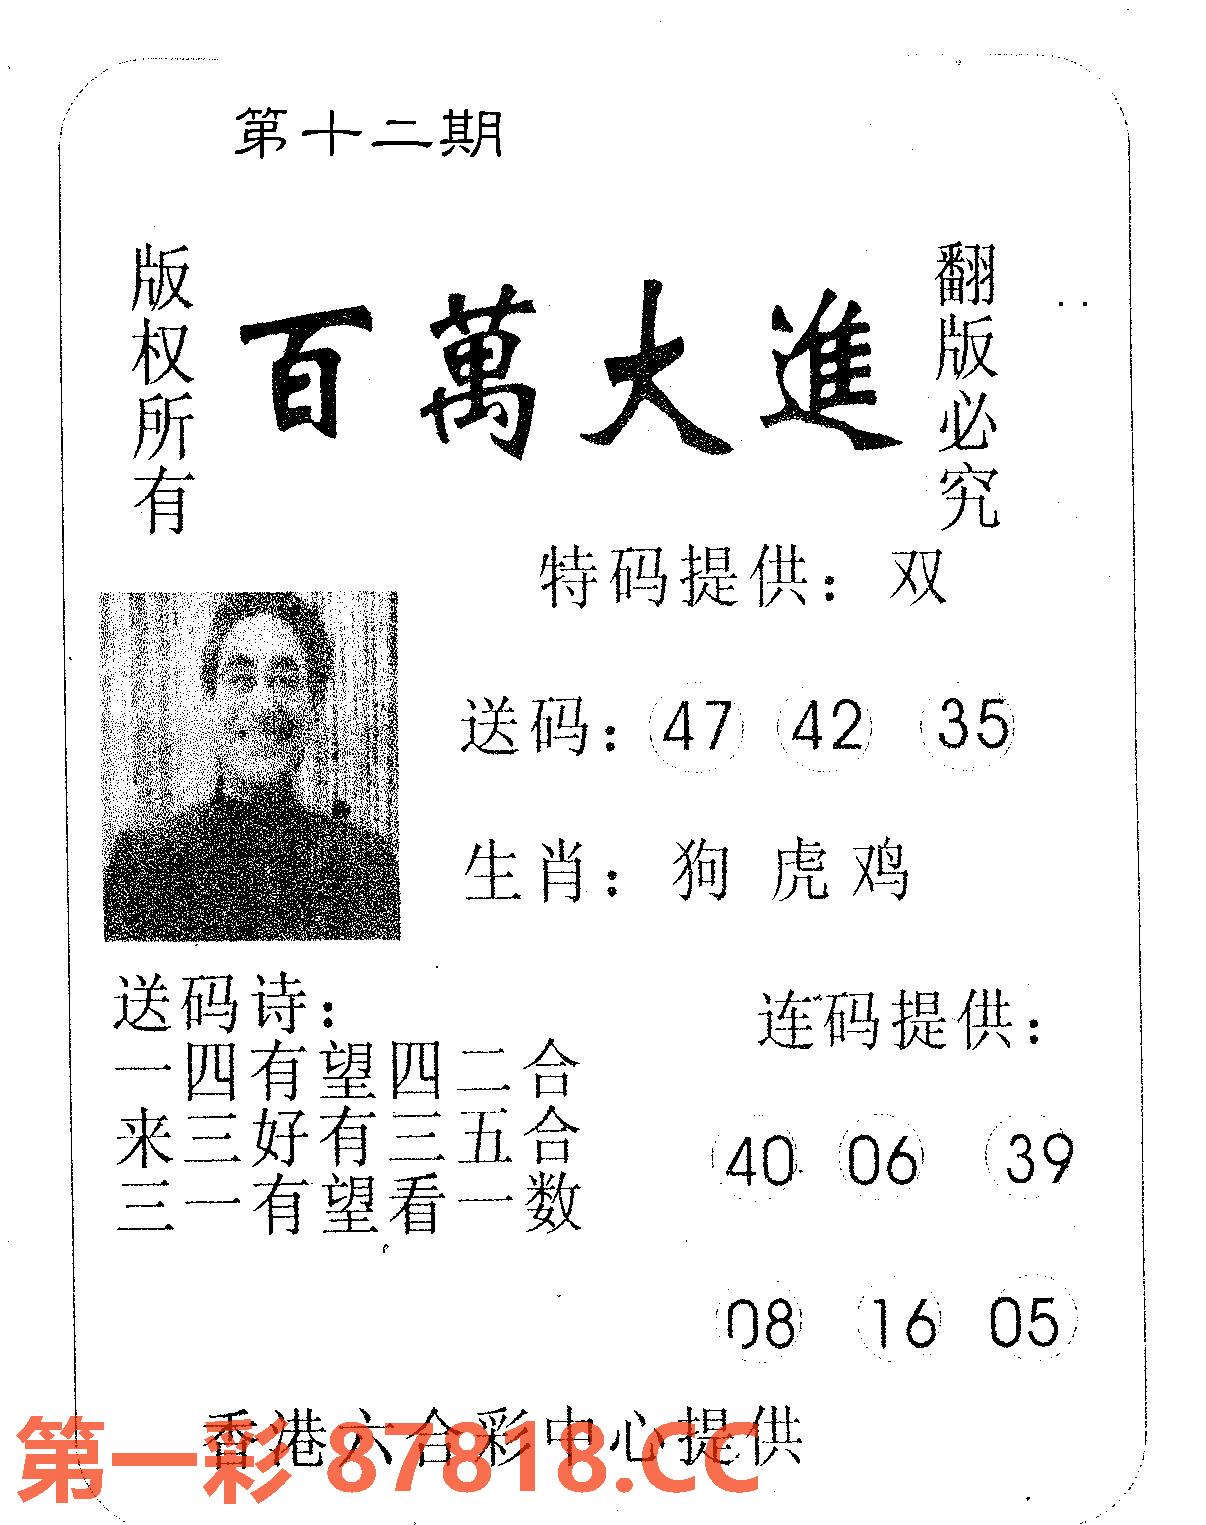 第十二期
版权所有
百萬大進
翻版必究
特码提供：双
送码：47 42 35
生肖：狗 虎 鸡
送码诗：
一四有望四二合
来三好有三五合
三一有望看一数
连码提供：
40 06 39
08 16 05
香港六合彩中心提供
第一彩 87818.CC